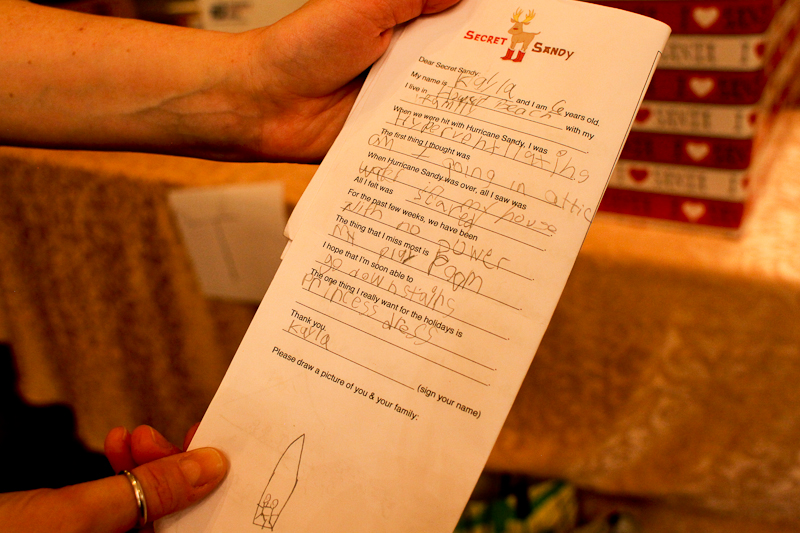 SECRET SANDY
Dear Secret Sandy:
My name is Kayla and I am 6 years old.
I live in Howard Beach with my
Family
When we were hit with Hurricane Sandy, I was
Hyperventilating
The first thing I thought was
am I going in attic
When Hurricane Sandy was over, all I saw was
water in my house
All I felt was scared
For the past few weeks, we have been
with no power
The thing that I miss most is
my play room
I hope that I'm soon able to
go downstairs
The one thing I really want for the holidays is
Princess dress
Thank you,
Kayla
(sign your name)
Please draw a picture of you & your family: